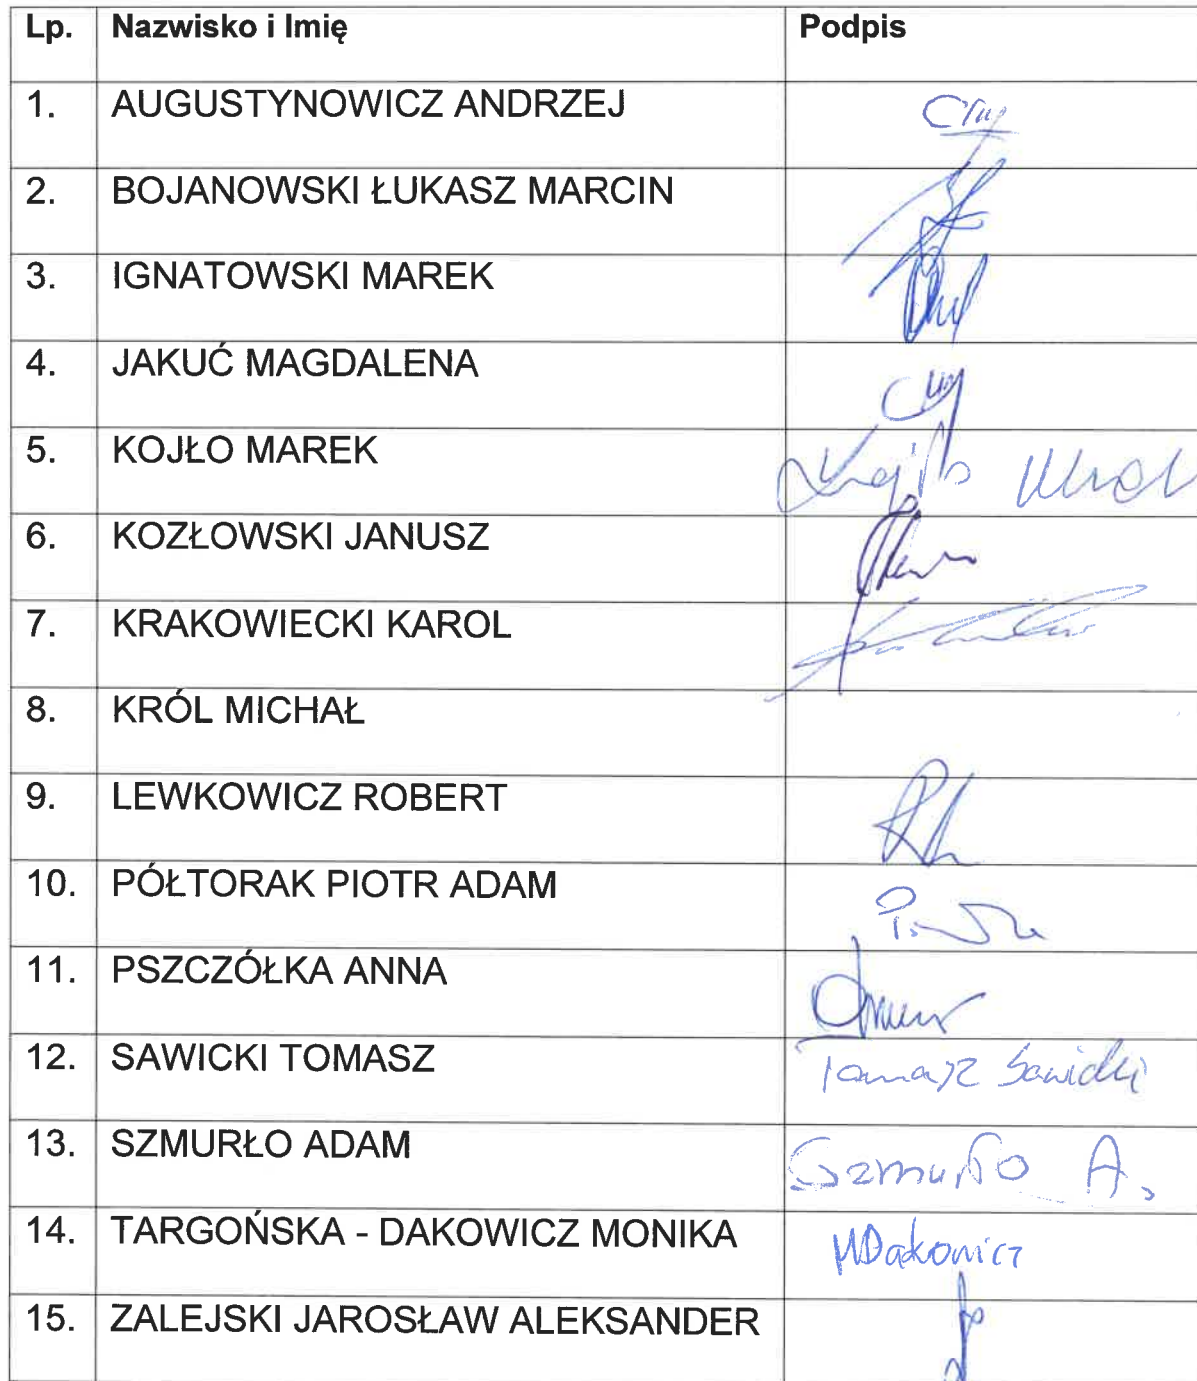 Lp. Nazwisko i Imię Podpis
1. AUGUSTYNOWICZ ANDRZEJ
2. BOJANOWSKI ŁUKASZ MARCIN
3. IGNATOWSKI MAREK
4. JAKUĆ MAGDALENA
5. KOJŁO MAREK Kojło Marek
6. KOZŁOWSKI JANUSZ
7. KRAKOWIECKI KAROL
8. KRÓL MICHAŁ
9. LEWKOWICZ ROBERT
10. PÓŁTORAK PIOTR ADAM
11. PSZCZÓŁKA ANNA
12. SAWICKI TOMASZ Tomasz Sawicki
13. SZMURŁO ADAM Szmurło A.
14. TARGOŃSKA - DAKOWICZ MONIKA MDakowicz
15. ZALEJSKI JAROSŁAW ALEKSANDER